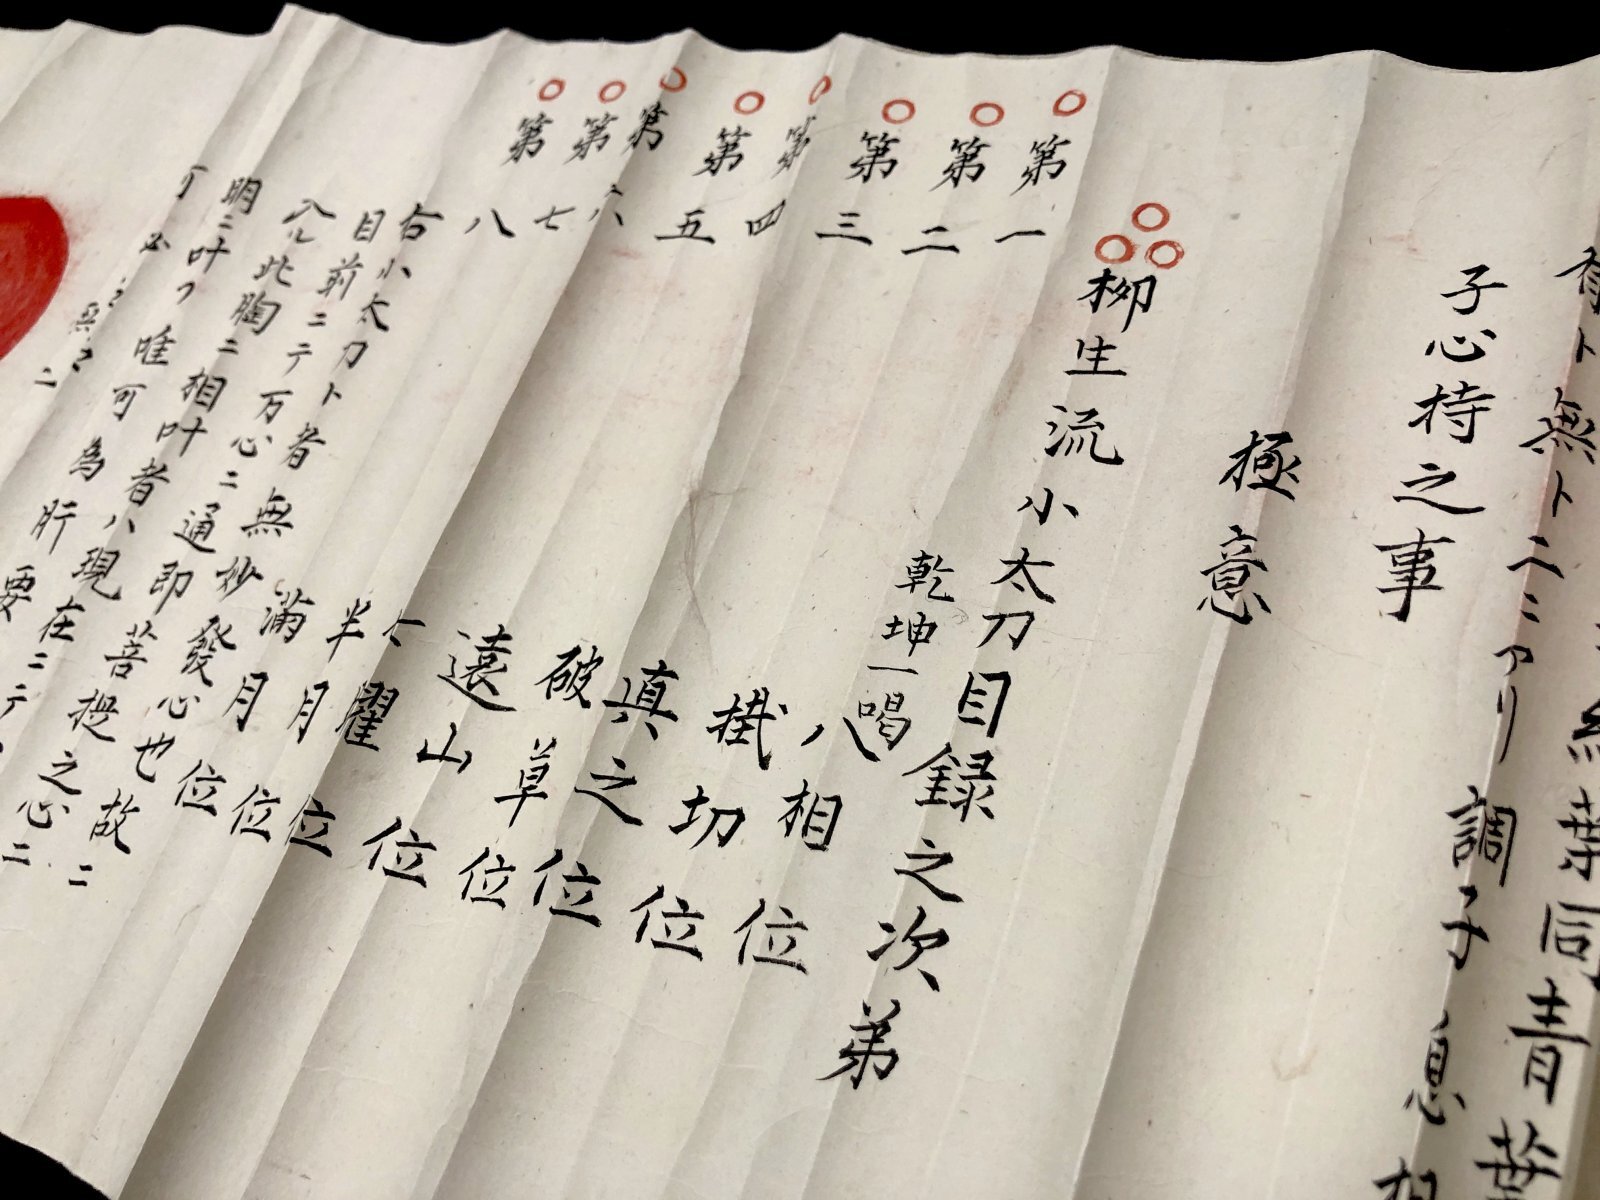 葉同青葉
有ト無ト二ミアリ調子息
子心持之事
極意
柳生流小太刀目録之次第
乾坤一喝
第一 八相位
第二 掛切位
第三 真之位
第四 破草位
第五 遠山位
第六 位
第七 半月位
第八 満月位
右小太刀ト者無妙發心也故ニ
目前ニテ万心ニ通即菩提之心ニ
八ル此胸ニ相叶者ハ現在ニテ
明ニ叶フ唯可為肝要
可